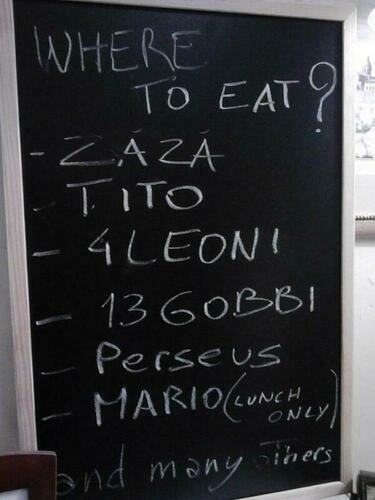 WHERE
TO EAT?
- ZÁZÁ
- TITO
- 4 LEONI
- 13 GOBBI
- Perseus
- MARIO (LUNCH ONLY)
and many others